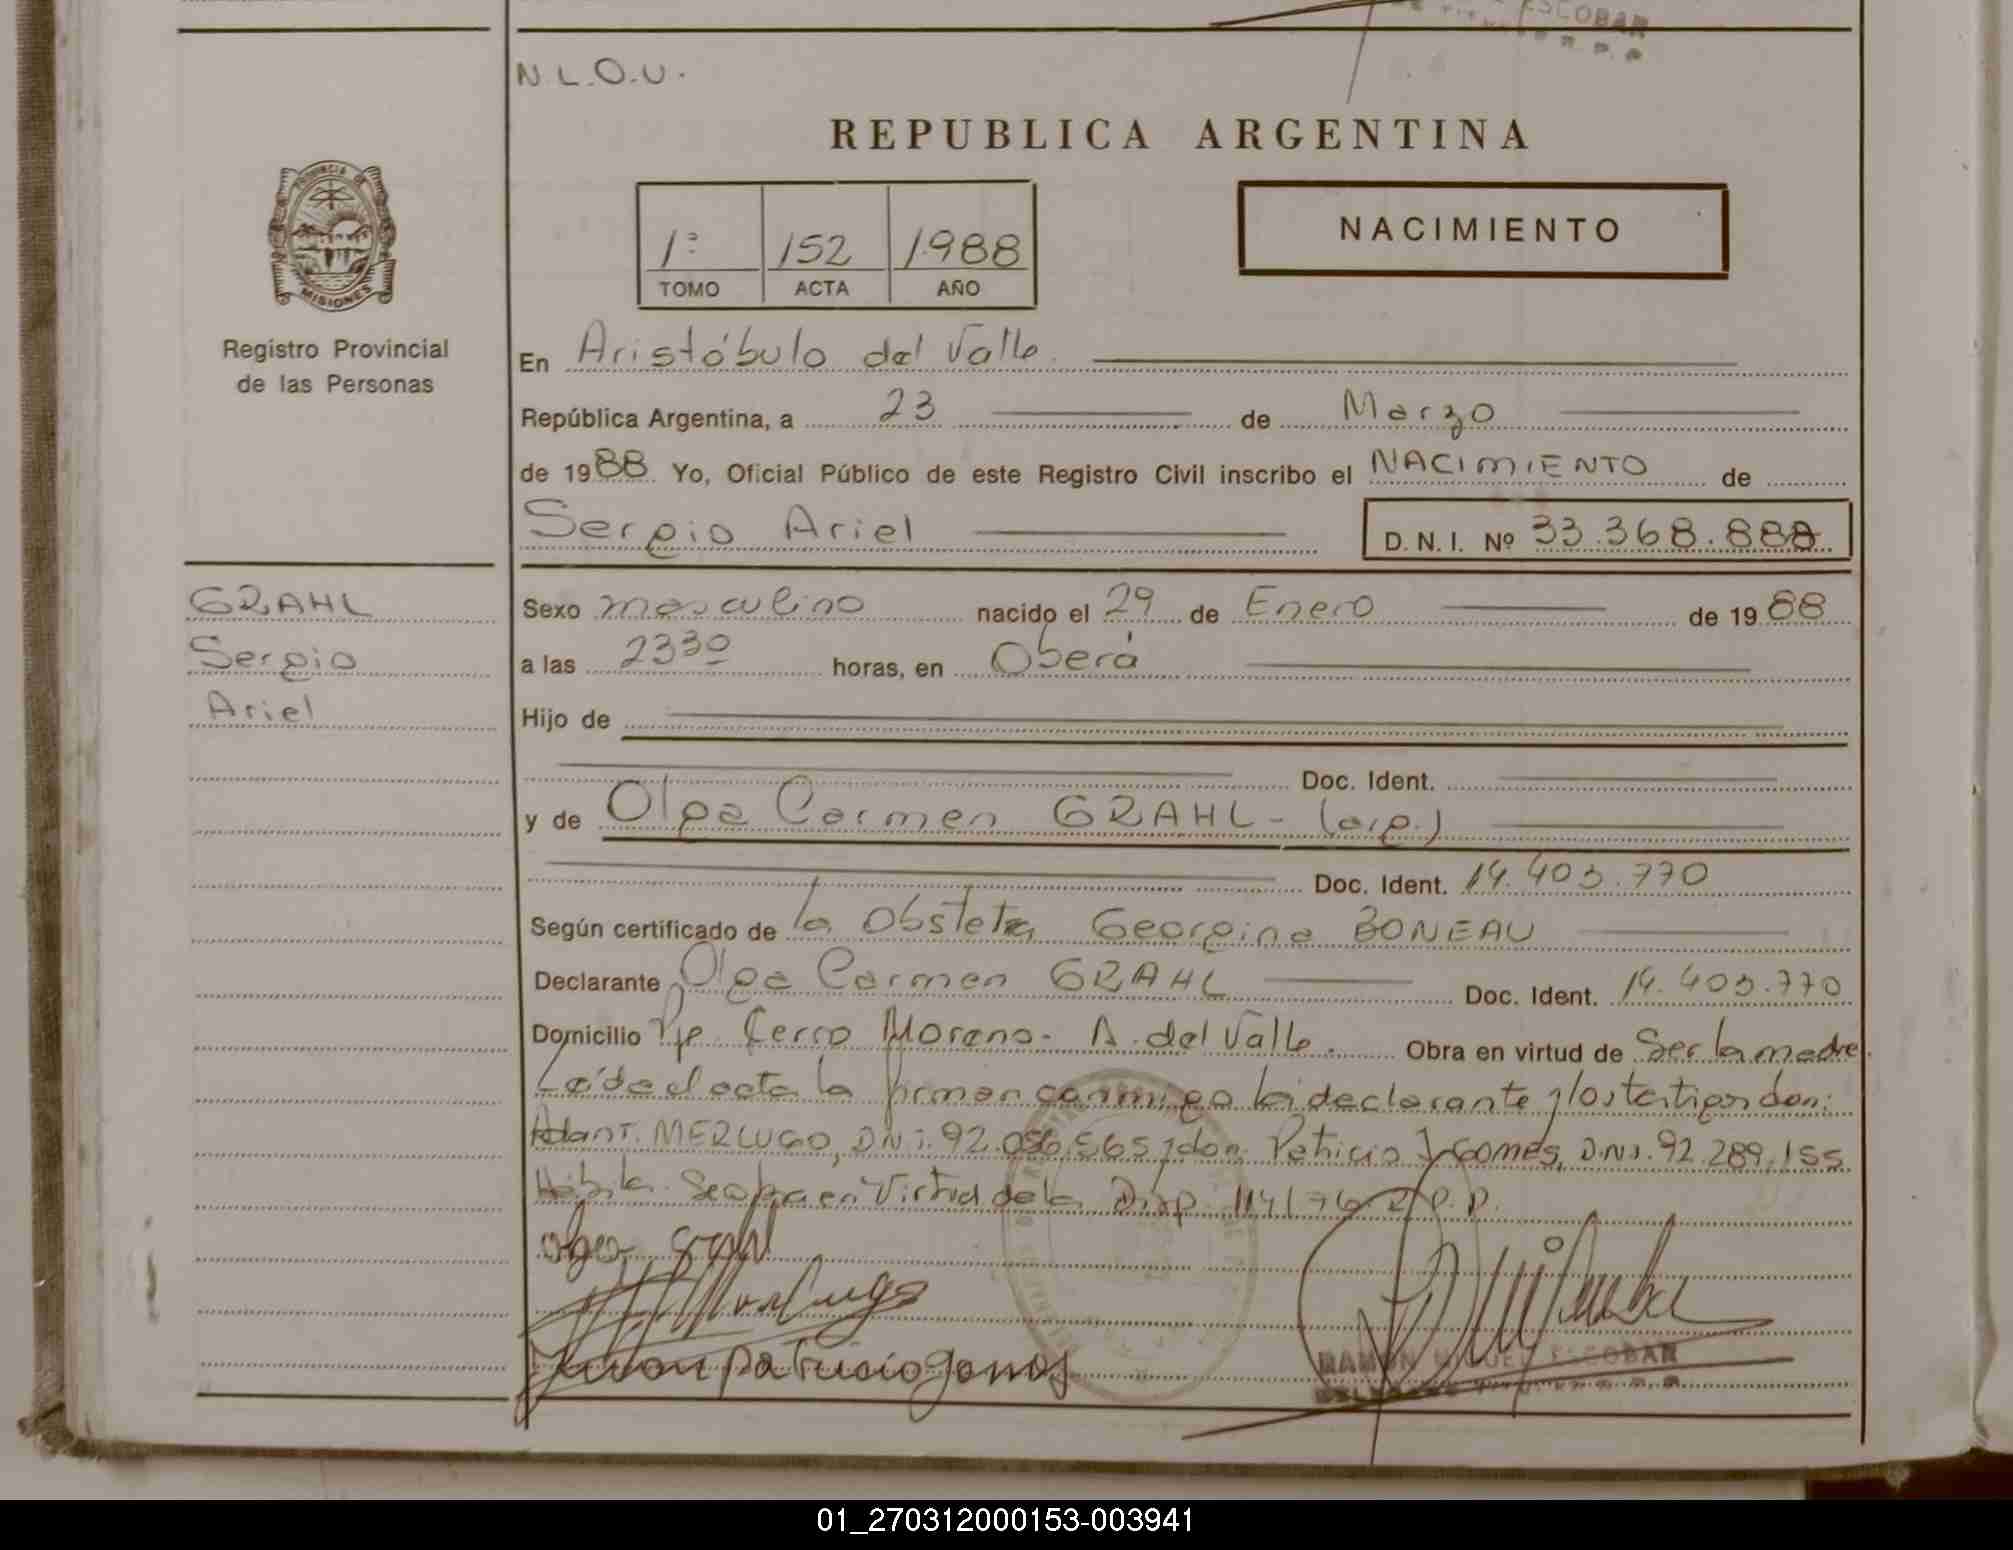 ESCOBAR
N.L.O.U.
REPUBLICA ARGENTINA
PROVINCIA DE
MISIONES
Registro Provincial
de las Personas
1º 152 1988
TOMO ACTA AÑO
NACIMIENTO
En Aristóbulo del Valle.
República Argentina, a 23 de Marzo
de 1988 Yo, Oficial Público de este Registro Civil inscribo el NACIMIENTO de
Sergio Ariel D.N.I. Nº 33.368.888
GRAHL
Sergio
Ariel
Sexo masculino nacido el 29 de Enero de 1988
a las 2330 horas, en Oberá
Hijo de
Doc. Ident.
y de Olga Carmen GRAHL - (arg.)
Doc. Ident. 14.403.770
Según certificado de la Obsteta Georgina BONEAU
Declarante Olga Carmen GRAHL Doc. Ident. 14.403.770
Domicilio Pje. Cerro Moreno - A. del Valle. Obra en virtud de Ser la madre.
Leída el acta la firman conmigo la declarante y los testigos don:
MERLUGO, D.N.I. 92.056.565 y don Patricio GOMES, D.N.I. 92.289.155
en Virtud de la Disp. 114/76 R.P.P.
Olga Grahl
Juan patricio gomes
RAMON MIGUEL ESCOBAR
01_270312000153-003941